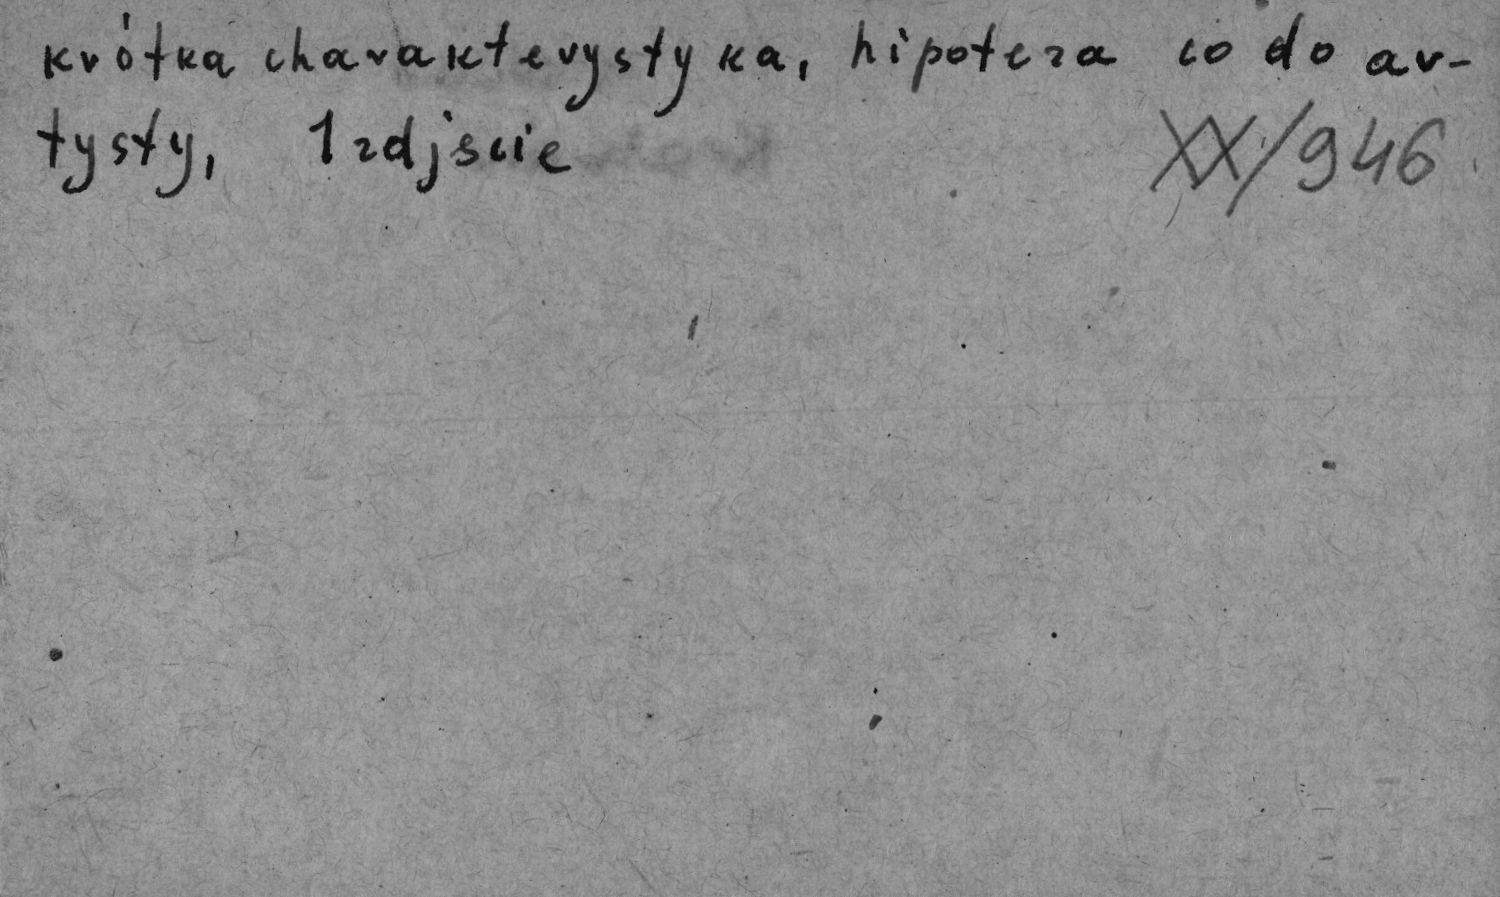 krótka charakterystyka, hipoteza co do ar-
tysty, 1 zdjście XX/946